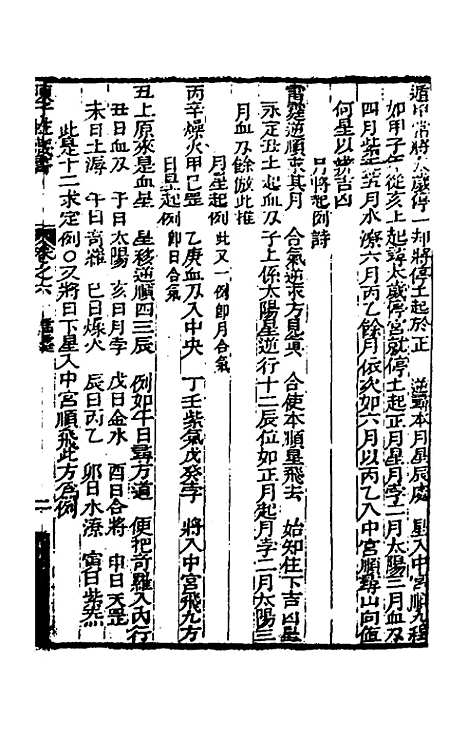 遁甲常將太歲停 却將停上起於正 逆尋本月星辰處 星入中宮順九程
如甲子年從亥上起尋太歲停宮就停上起正月星月孛二月太陽三月血刃
四月紫炁五月水潦六月丙乙餘月依次如六月以丙乙入中宮順尋山向值
何星以推吉凶
月將起例詩
雷霆逆順求其月 合氣逆來方見真 合使本順星飛去 始知住下吉凶星
永定丑上起血刃子上係太陽星逆行十二辰位如正月起月孛二月太陽三
月血刃餘倣此推
月星起例 此又一例卽月合氣
丙辛燥火甲己罡 乙庚血刃入中央 丁壬紫氣戊癸孛 將入中宮飛九方
日星起例 卽日合氣
丑上原來是血星 星移逆順四三辰 例如午日尋方道 便把奇羅入內行
丑日血刃 子日太陽 亥日月孛 戌日金水 酉日合將 申日天罡
未日土溽 午日奇羅 巳日燥火 辰日丙乙 卯日水潦 寅日紫炁
此是十二求定例〇又將日下星入中宮順飛此方爲例
卷之六